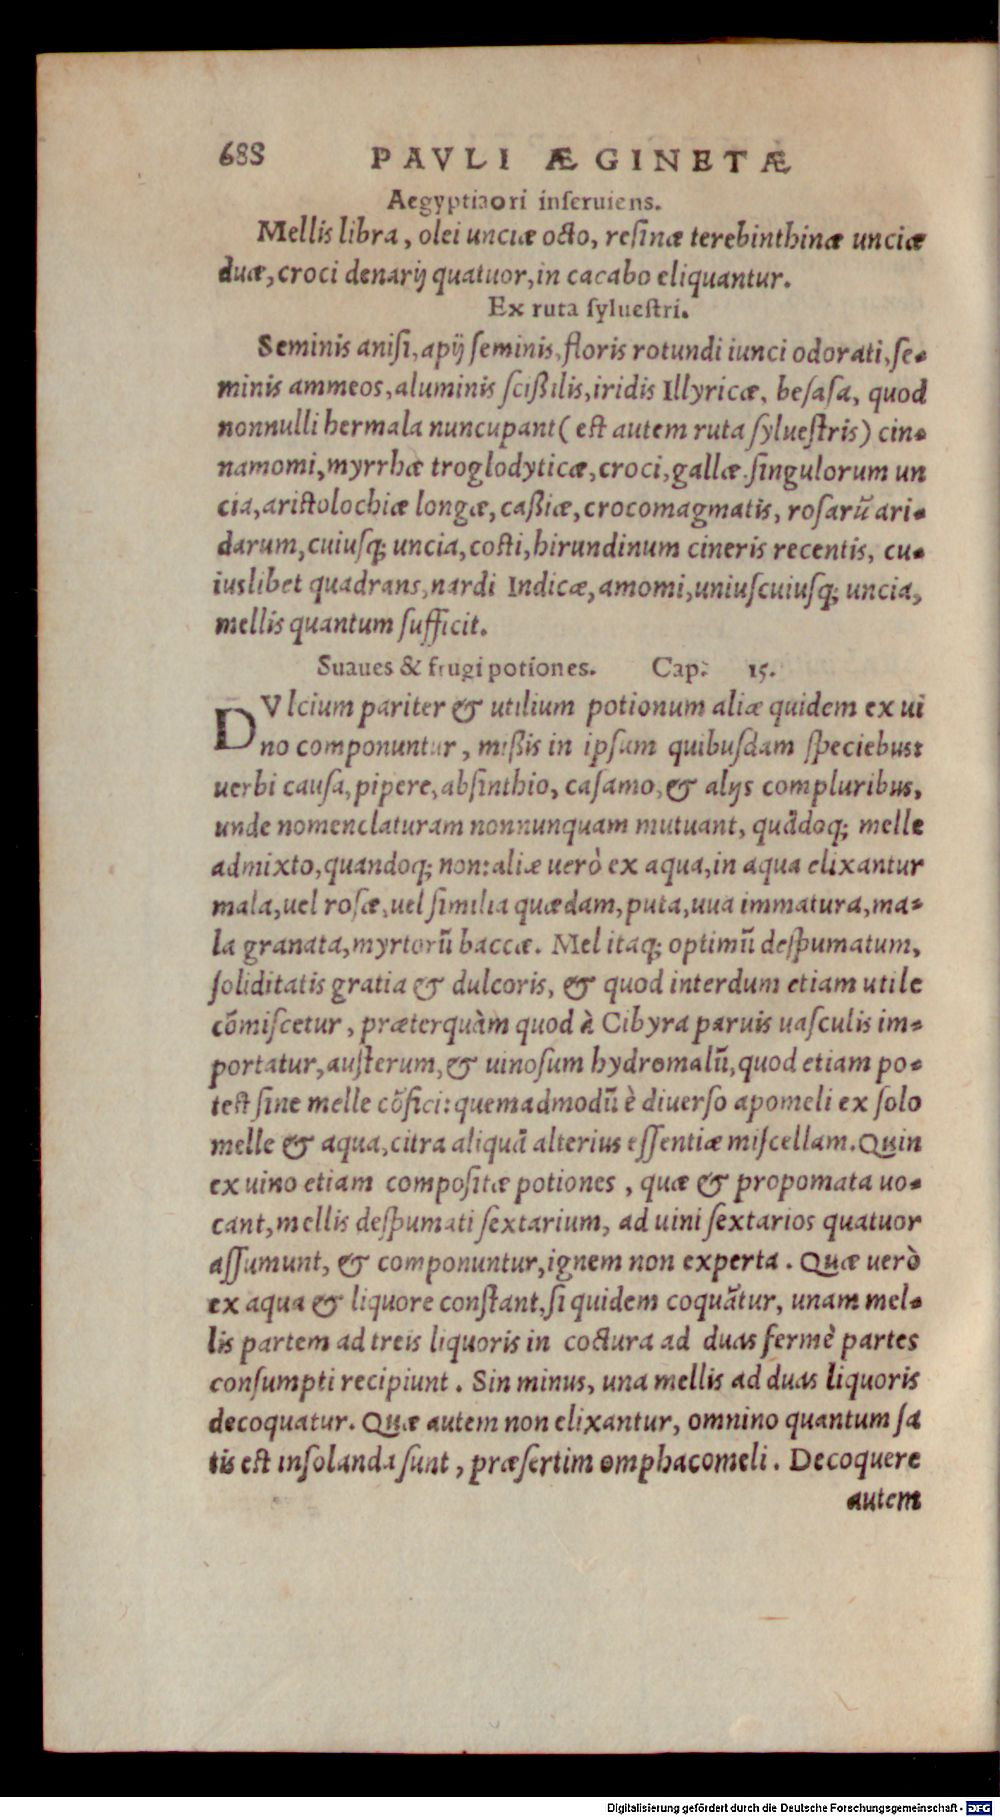 688 PAVLI ÆGINETÆ
Aegyptia ori inseruiens.
Mellis libra, olei unciæ octo, resinæ terebinthinæ unciæ
duæ, croci denarij quatuor, in cacabo eliquantur.
Ex ruta syluestri.
Seminis anisi, apij seminis, floris rotundi iunci odorati, se-
minis ammeos, aluminis scißilis, iridis Illyricæ, besasa, quod
nonnulli hermala nuncupant (est autem ruta syluestris) cin-
namomi, myrrhæ troglodyticæ, croci, gallæ singulorum un
cia, aristolochiæ longæ, caßiæ, crocomagmatis, rosarũ ari-
darum, cuiusq; uncia, costi, hirundinum cineris recentis, cu-
iuslibet quadrans, nardi Indicæ, amomi, uniuscuiusq; uncia,
mellis quantum sufficit.
Suaues & frugi potiones. Cap. 15.
DVlcium pariter & utilium potionum aliæ quidem ex ui
no componuntur, mißis in ipsum quibusdam speciebus:
uerbi causa, pipere, absinthio, casamo, & alijs compluribus,
unde nomenclaturam nonnunquam mutuant, quãdoq; melle
admixto, quandoq; non: aliæ uerò ex aqua, in aqua elixantur
mala, uel rosæ, uel similia quædam, puta, uua immatura, ma-
la granata, myrtorũ baccæ. Mel itaq; optimũ despumatum,
soliditatis gratia & dulcoris, & quod interdum etiam utile
cõmiscetur, præterquàm quod à Cibyra paruis uasculis im-
portatur, austerum, & uinosum hydromalũ, quod etiam po-
test sine melle cõfici: quemadmodũ è diuerso apomeli ex solo
melle & aqua, citra aliquã alterius essentiæ miscellam. Quin
ex uino etiam compositæ potiones, quæ & propomata uo-
cant, mellis despumati sextarium, ad uini sextarios quatuor
assumunt, & componuntur, ignem non experta. Quæ uerò
ex aqua & liquore constant, si quidem coquãtur, unam mel-
lis partem ad treis liquoris in coctura ad duas fermè partes
consumpti recipiunt. Sin minus, una mellis ad duas liquoris
decoquatur. Quæ autem non elixantur, omnino quantum sa
tis est insolanda sunt, præsertim omphacomeli. Decoquere
autem
Digitalisierung gefördert durch die Deutsche Forschungsgemeinschaft - DFG